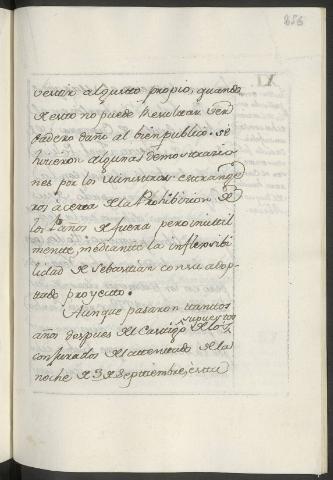 856
vestir al gusto propio, quando
de esto no puede resultar ver
dadero daño al bien publico. Se
hicieron algunas demostracio
nes por los Ministros estrange
ros acerca de la Prohibicion de
los Paños de fuera pero inutil
mente, mediante la inflexivi
lidad de Sebastian con su adop
tado proyecto.
Aunque pasaron tantos
años despues del Castigo de los supuestos
conjurados del attentado de la
noche de 3 de Septiembre, estu